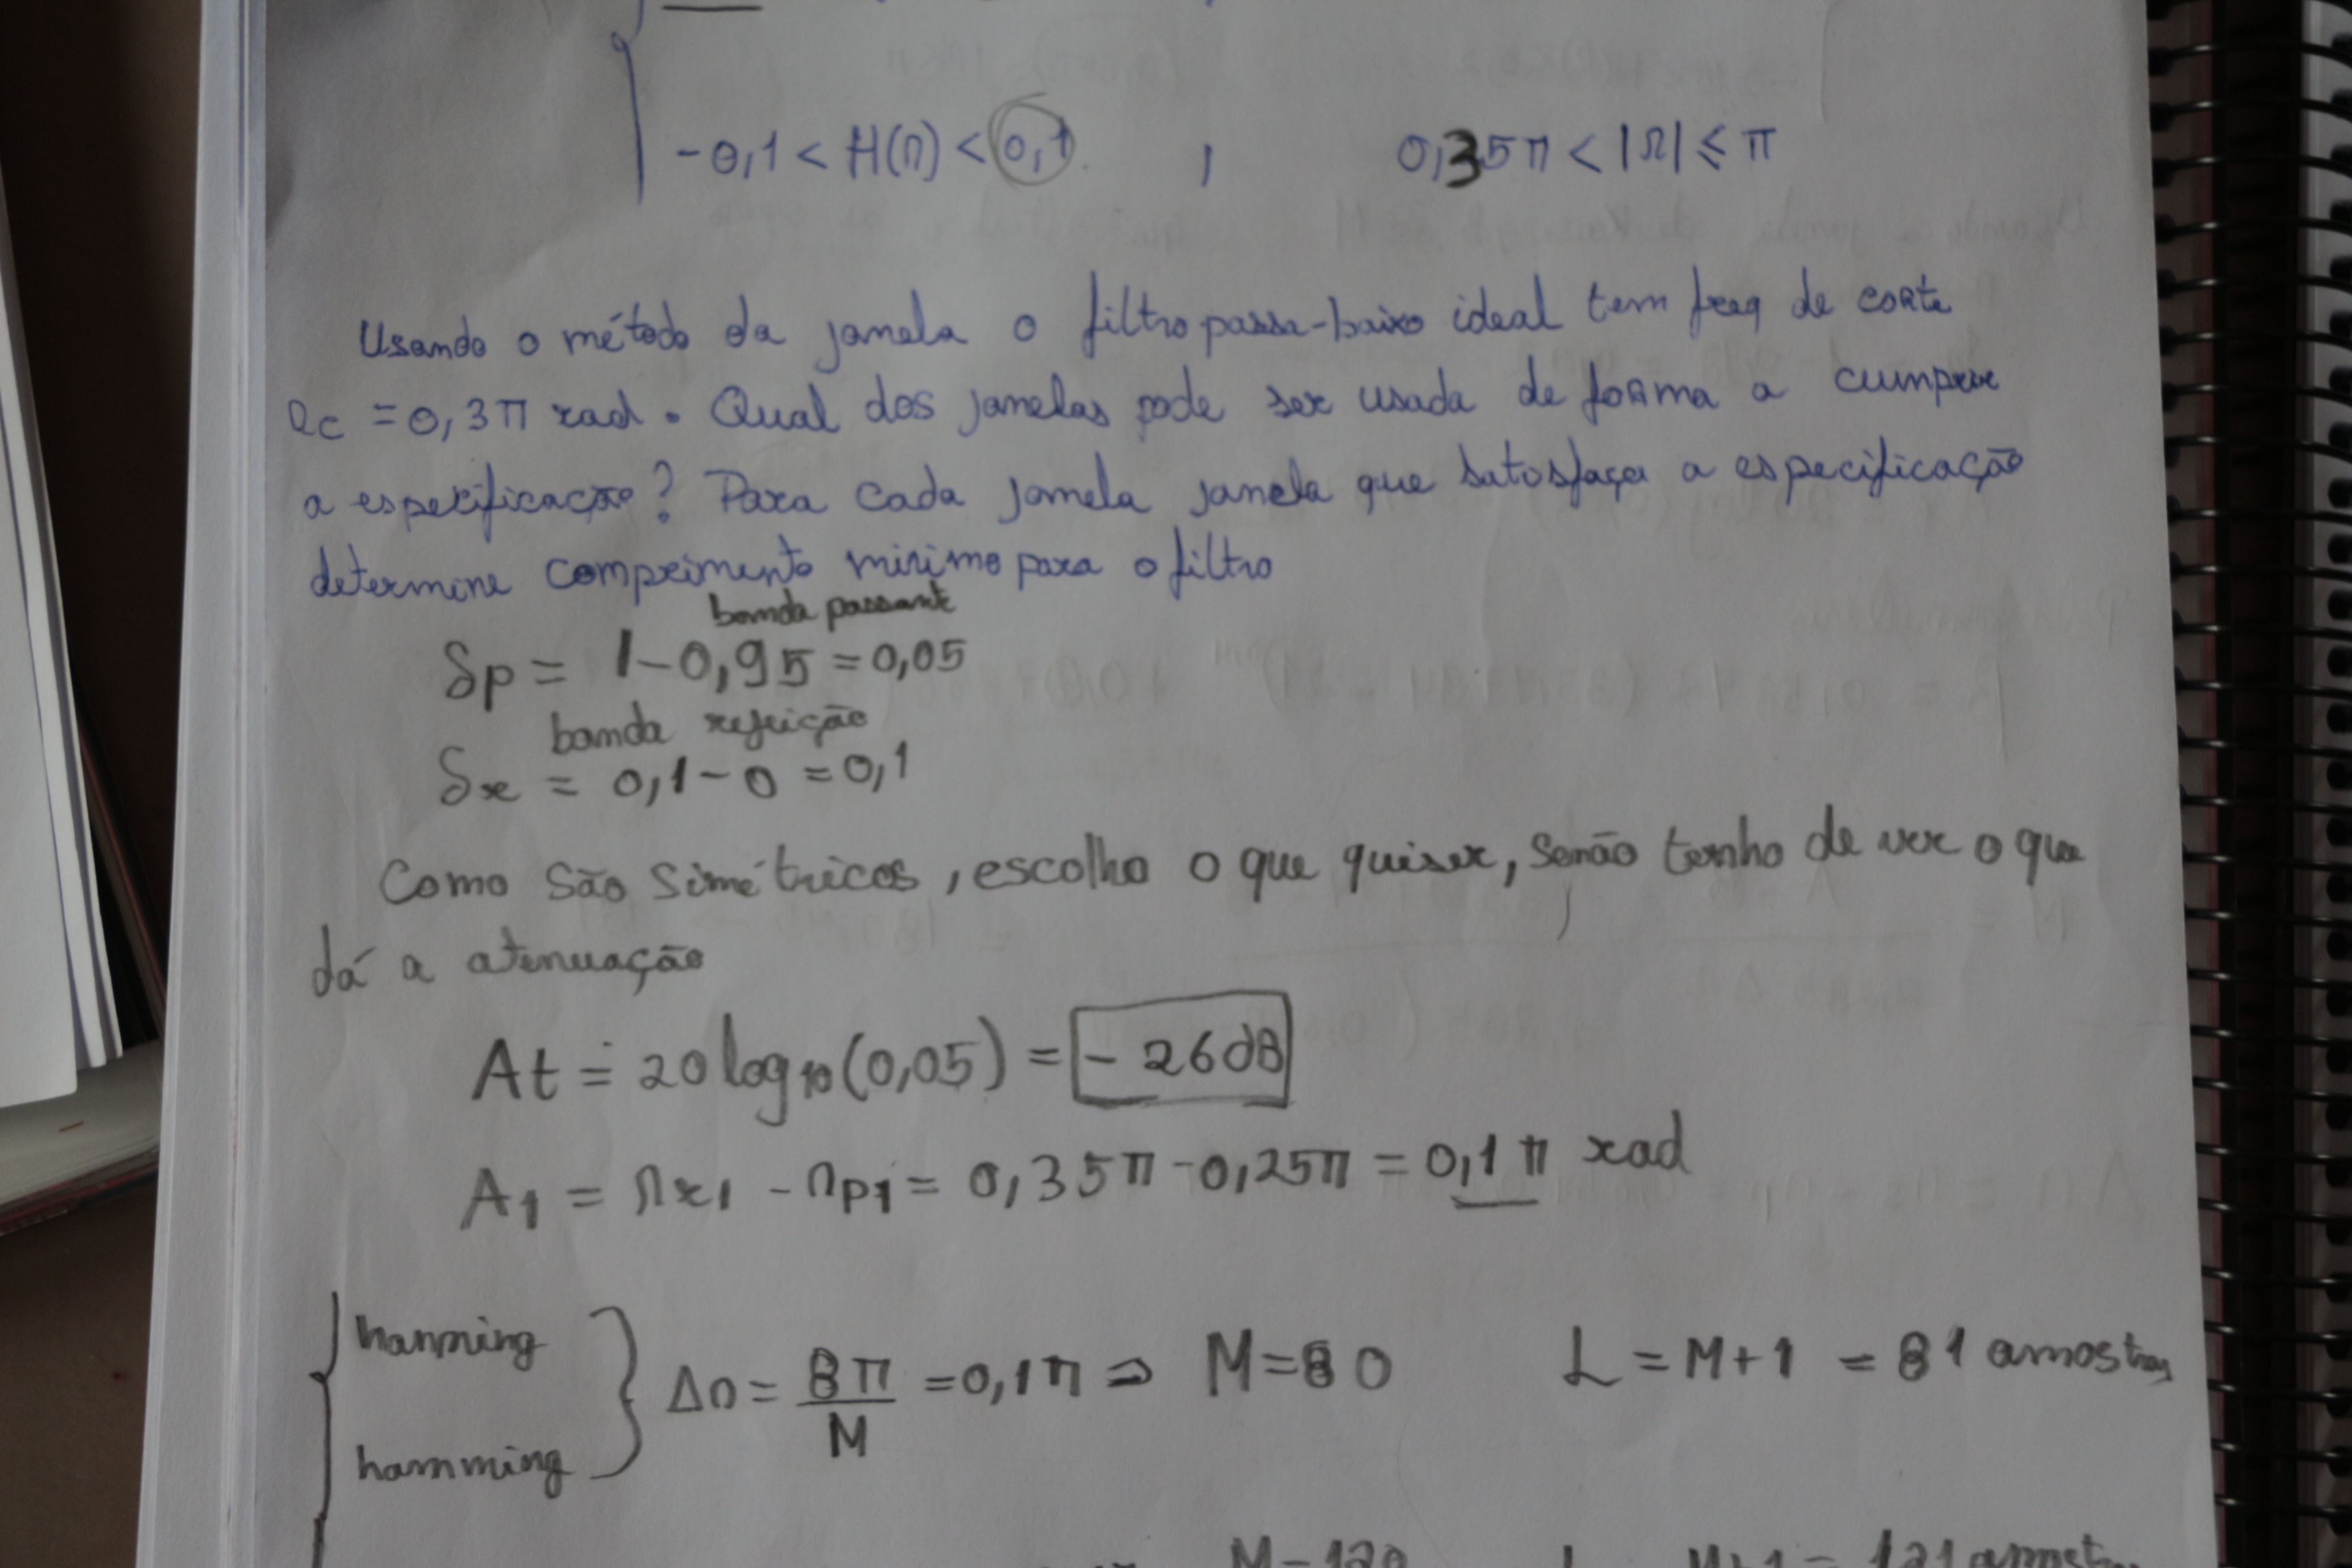 -0,1 < H(Ω) < 0,1 , 0,35π < |Ω| ≤ π
Usando o método da janela o filtro passa-baixo ideal tem freq de corte
Ωc = 0,3π rad. Qual dos janelas pode ser usada de forma a cumprir
a especificação? Para cada janela janela que satisfaça a especificação
determine comprimento minimo para o filtro
banda passante
δp = 1-0,95 = 0,05
banda rejeição
δr = 0,1-0 = 0,1
Como são simétricos, escolho o que quiser, senão tenho de ver o que
dá a atenuação
At = 20 log10(0,05) = -26dB
A1 = Ωr1 - Ωp1 = 0,35π - 0,25π = 0,1π rad
hanning
ΔΩ = 8π/M = 0,1π ⇒ M=80 L = M+1 = 81 amostras
hamming
M=120 L = M+1 = 121 amost